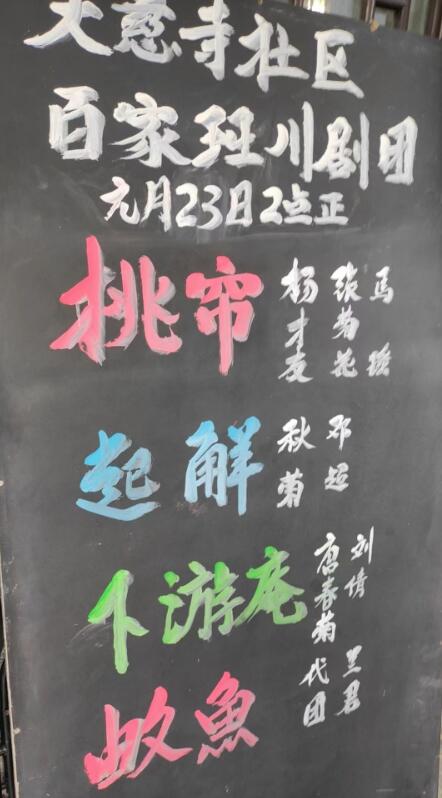 大慈寺社区
百家班川剧团
元月23日2点正
挑帘
马
菊花
杨
起解
邓超
秋菊
下游庵
刘倩 兰君
唐春菊 代团
魚